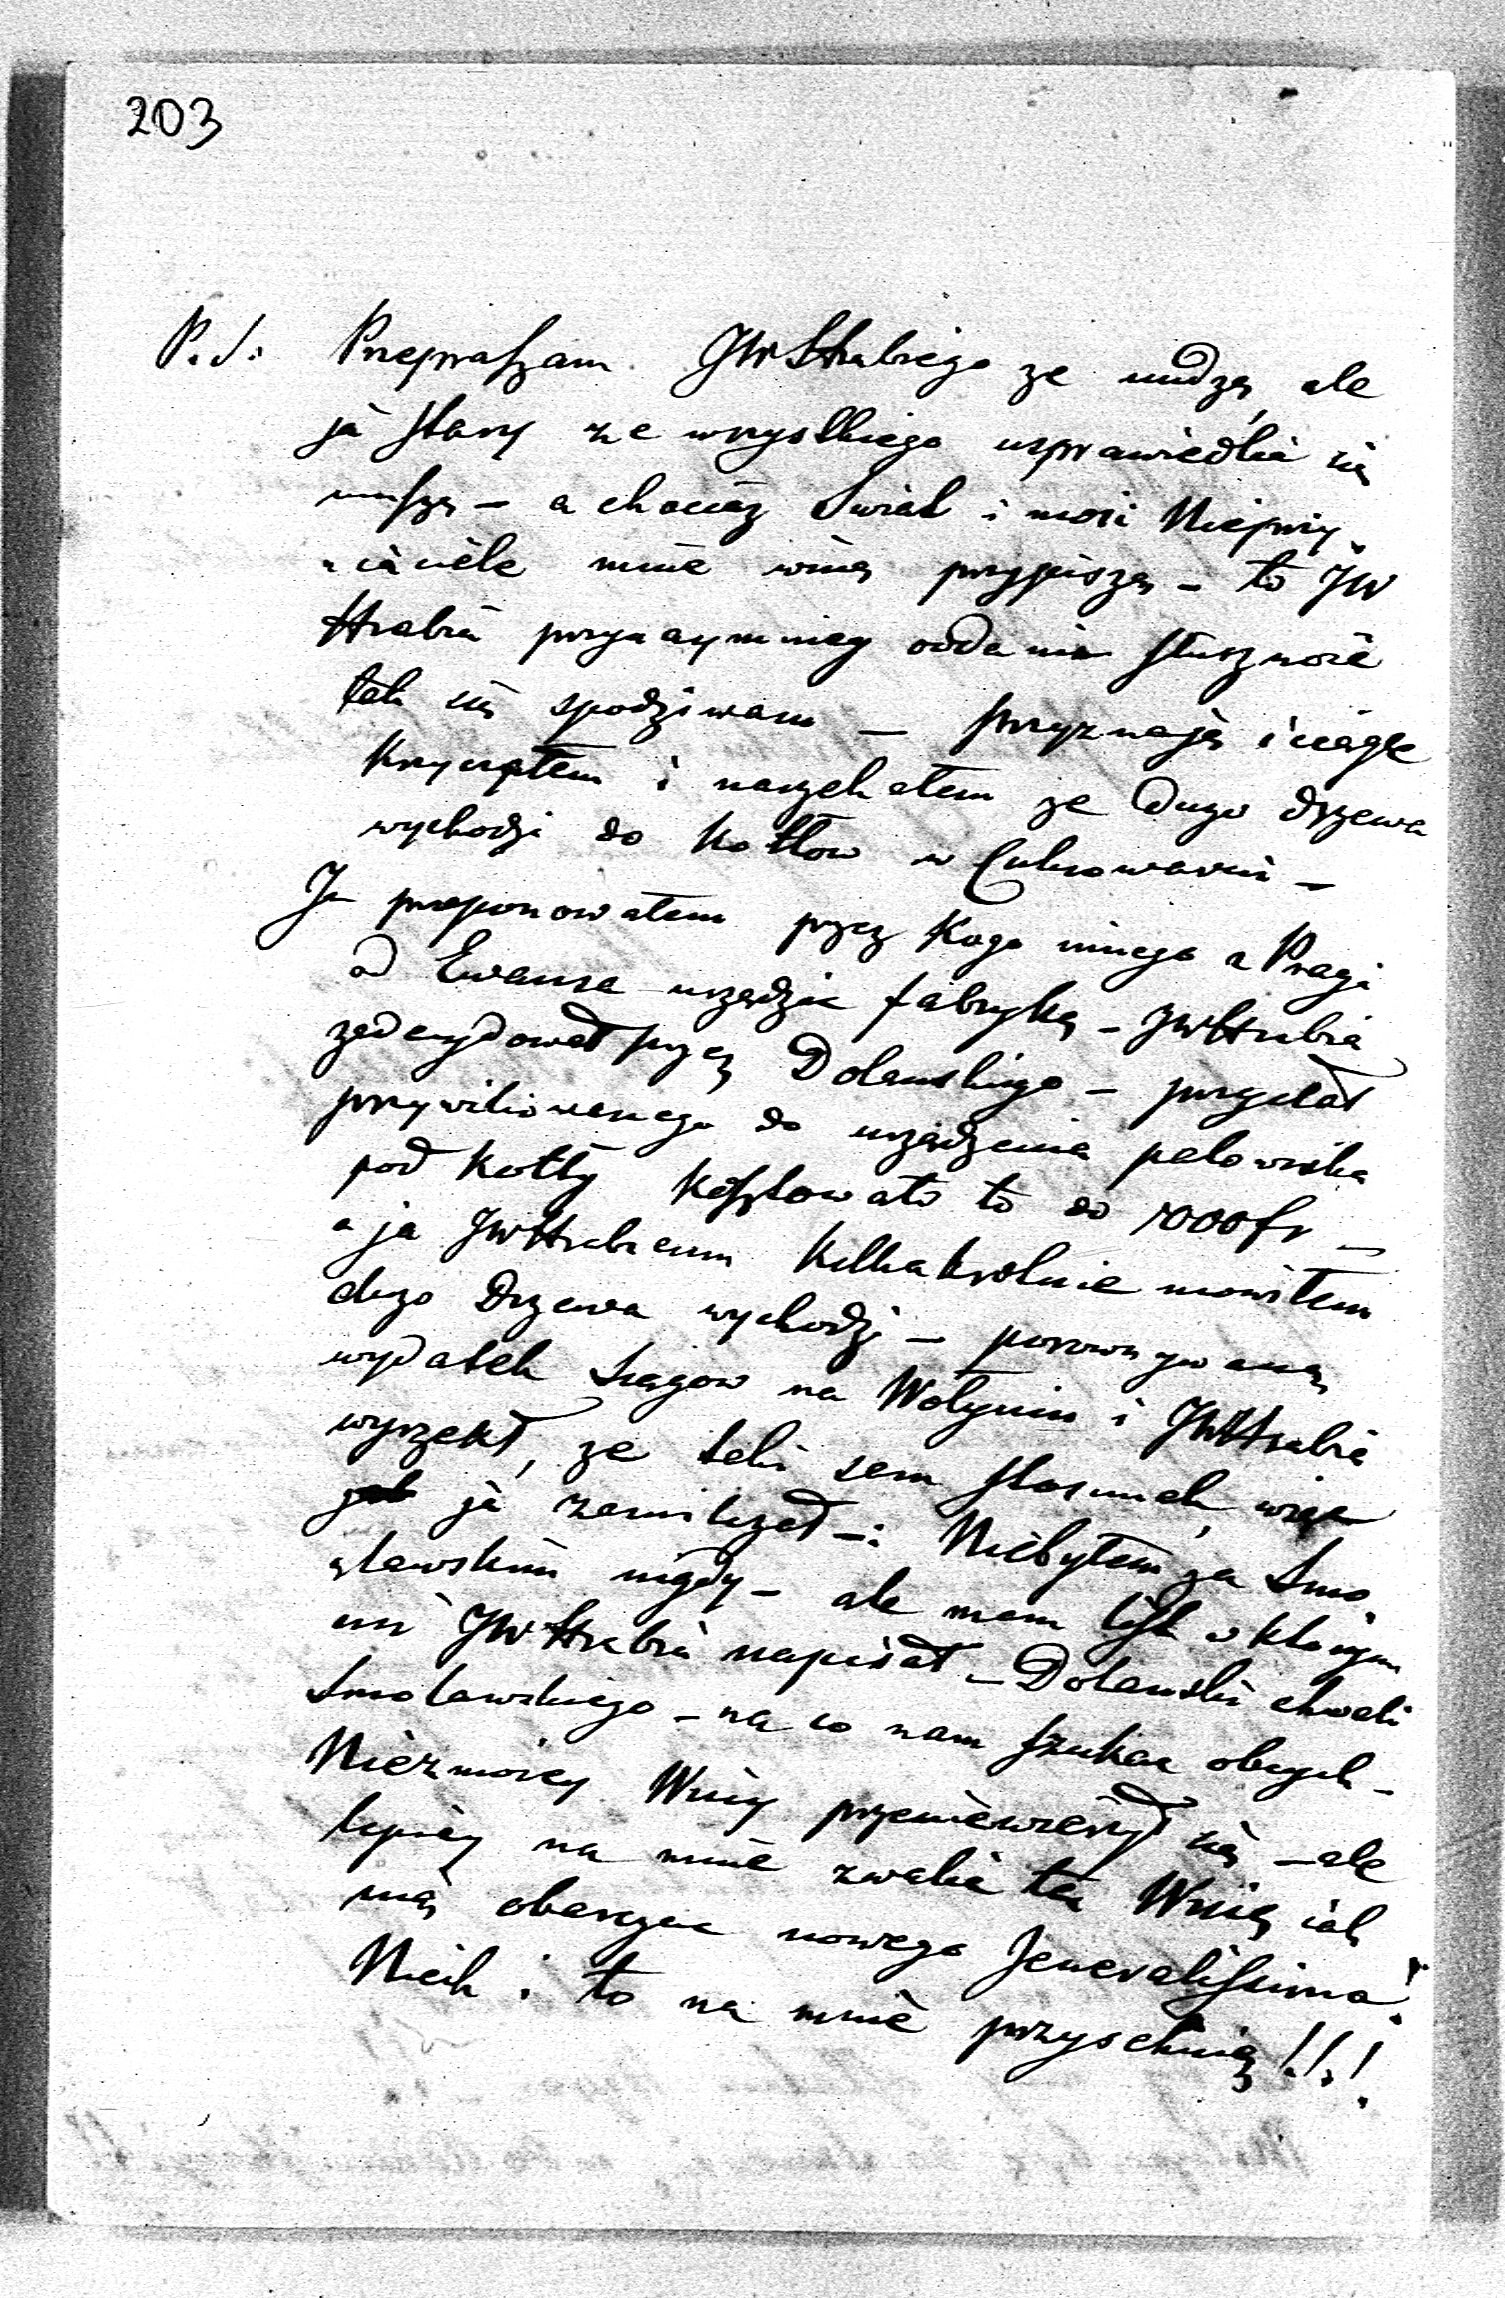 203
P. S. Przepraszam JWHrabiego ze nudzę, ale
ja stary ze wszystkiego usprawiedlić się
muszę – a chociaż Swiat i moi Nieprzy
iaciele mnie winę przypiszą – to JW
Hrabia przynaymniey odda mi słuszność
tak się spodziwam – przyznaję i ciągle
Krzyczałem i narzekałem ze dugo drzewa
wychodzi do Kotłow w Cukrowarni –
Ja proponowałem przez Kogo innego z Pragi
od Ewansa urządzic fabrykę – JWHrabia
zadecydował przez Dolanskiego – przysłał
do urządzenia paleniska
pod Kotły Kosztowało to do 1000 fr –
a ja JWHrabiemu Kilkakrotnie mowiłem
dugo Drzewa wychodzi –
wydatek Sągow na Wołyniu i JWHrabia
wyrzekł, ze taki sam stosunek, więc
ja zamilczał –: Niebyłem za Smo
ławskim nigdy – ale mam list w ktorym
mi JWHrabia napisał – Dolanski chwali
Smoławskiego – na co nam szukac obcych –
Niezmoiey Winy przeniewierzył się – ale
lepiey na mnie zwalić tę Winę iak
nią obarczac nowego Jeneralissima!
Niech i to na mnie przyschnie!!!